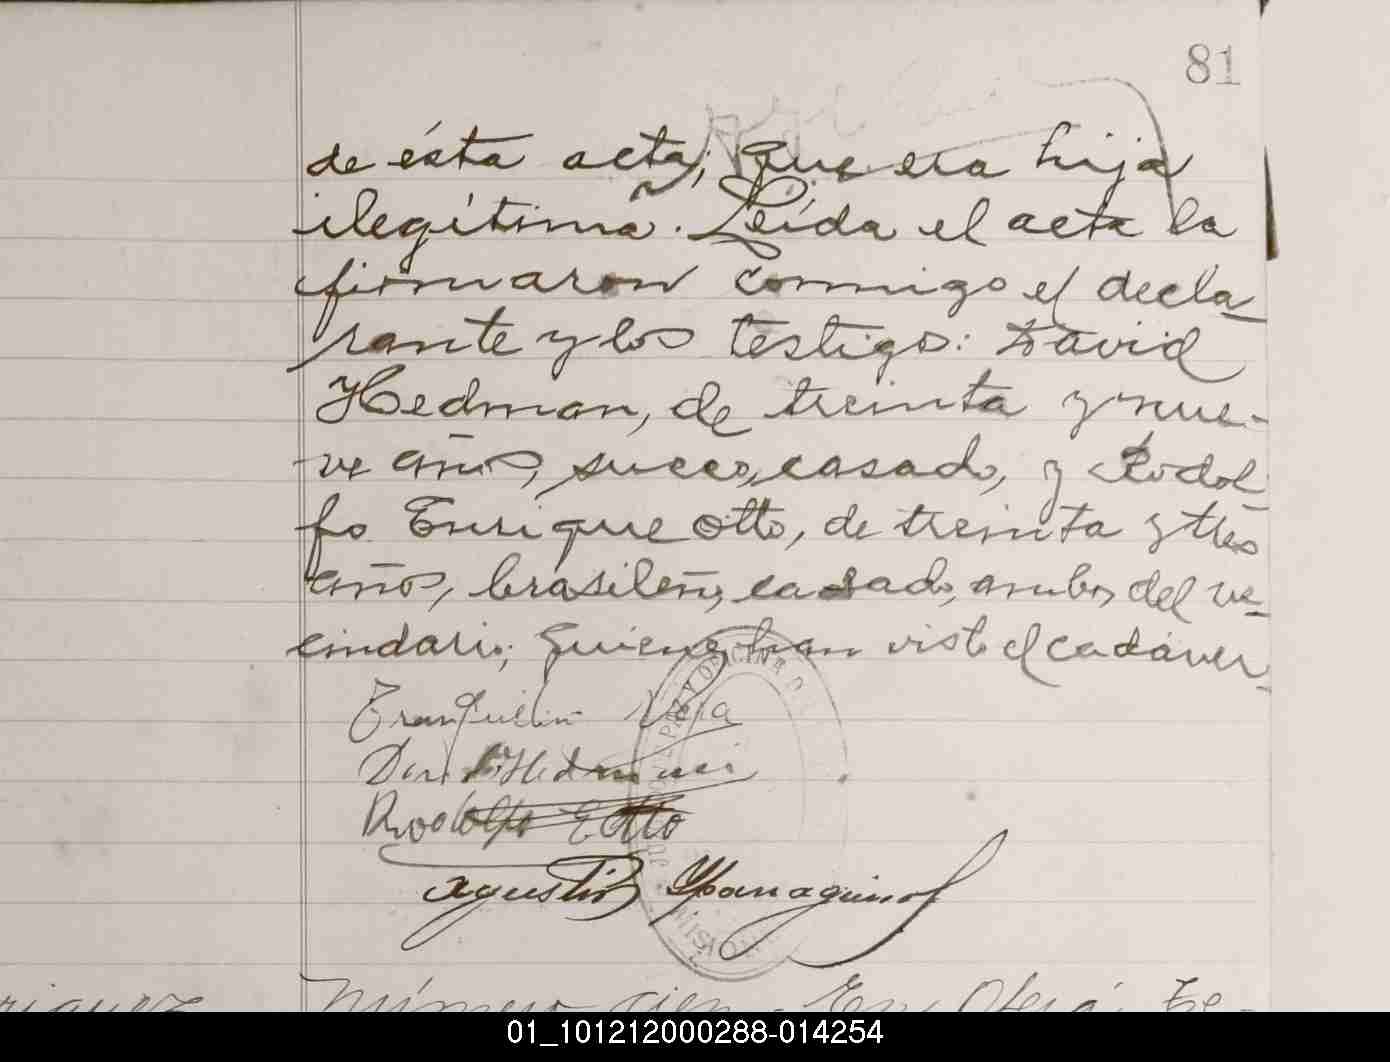 81
de ésta acta; que era hija
ilegítima. Leída el acta la
firmaron conmigo el decla_
rante y los testigos: David
Hedman, de treinta y nue-
ve años, sueco, casado, y Rodol
fo Enrique Otto, de treinta y tres
años, brasileño, casado, ambos del ve_
cindario; quienes han visto el cadáver_
Tranquilin Vera
David Hedman
Rodolfo E Otto
Agustin
Número cien. En Oberá, De-
01_101212000288-014254